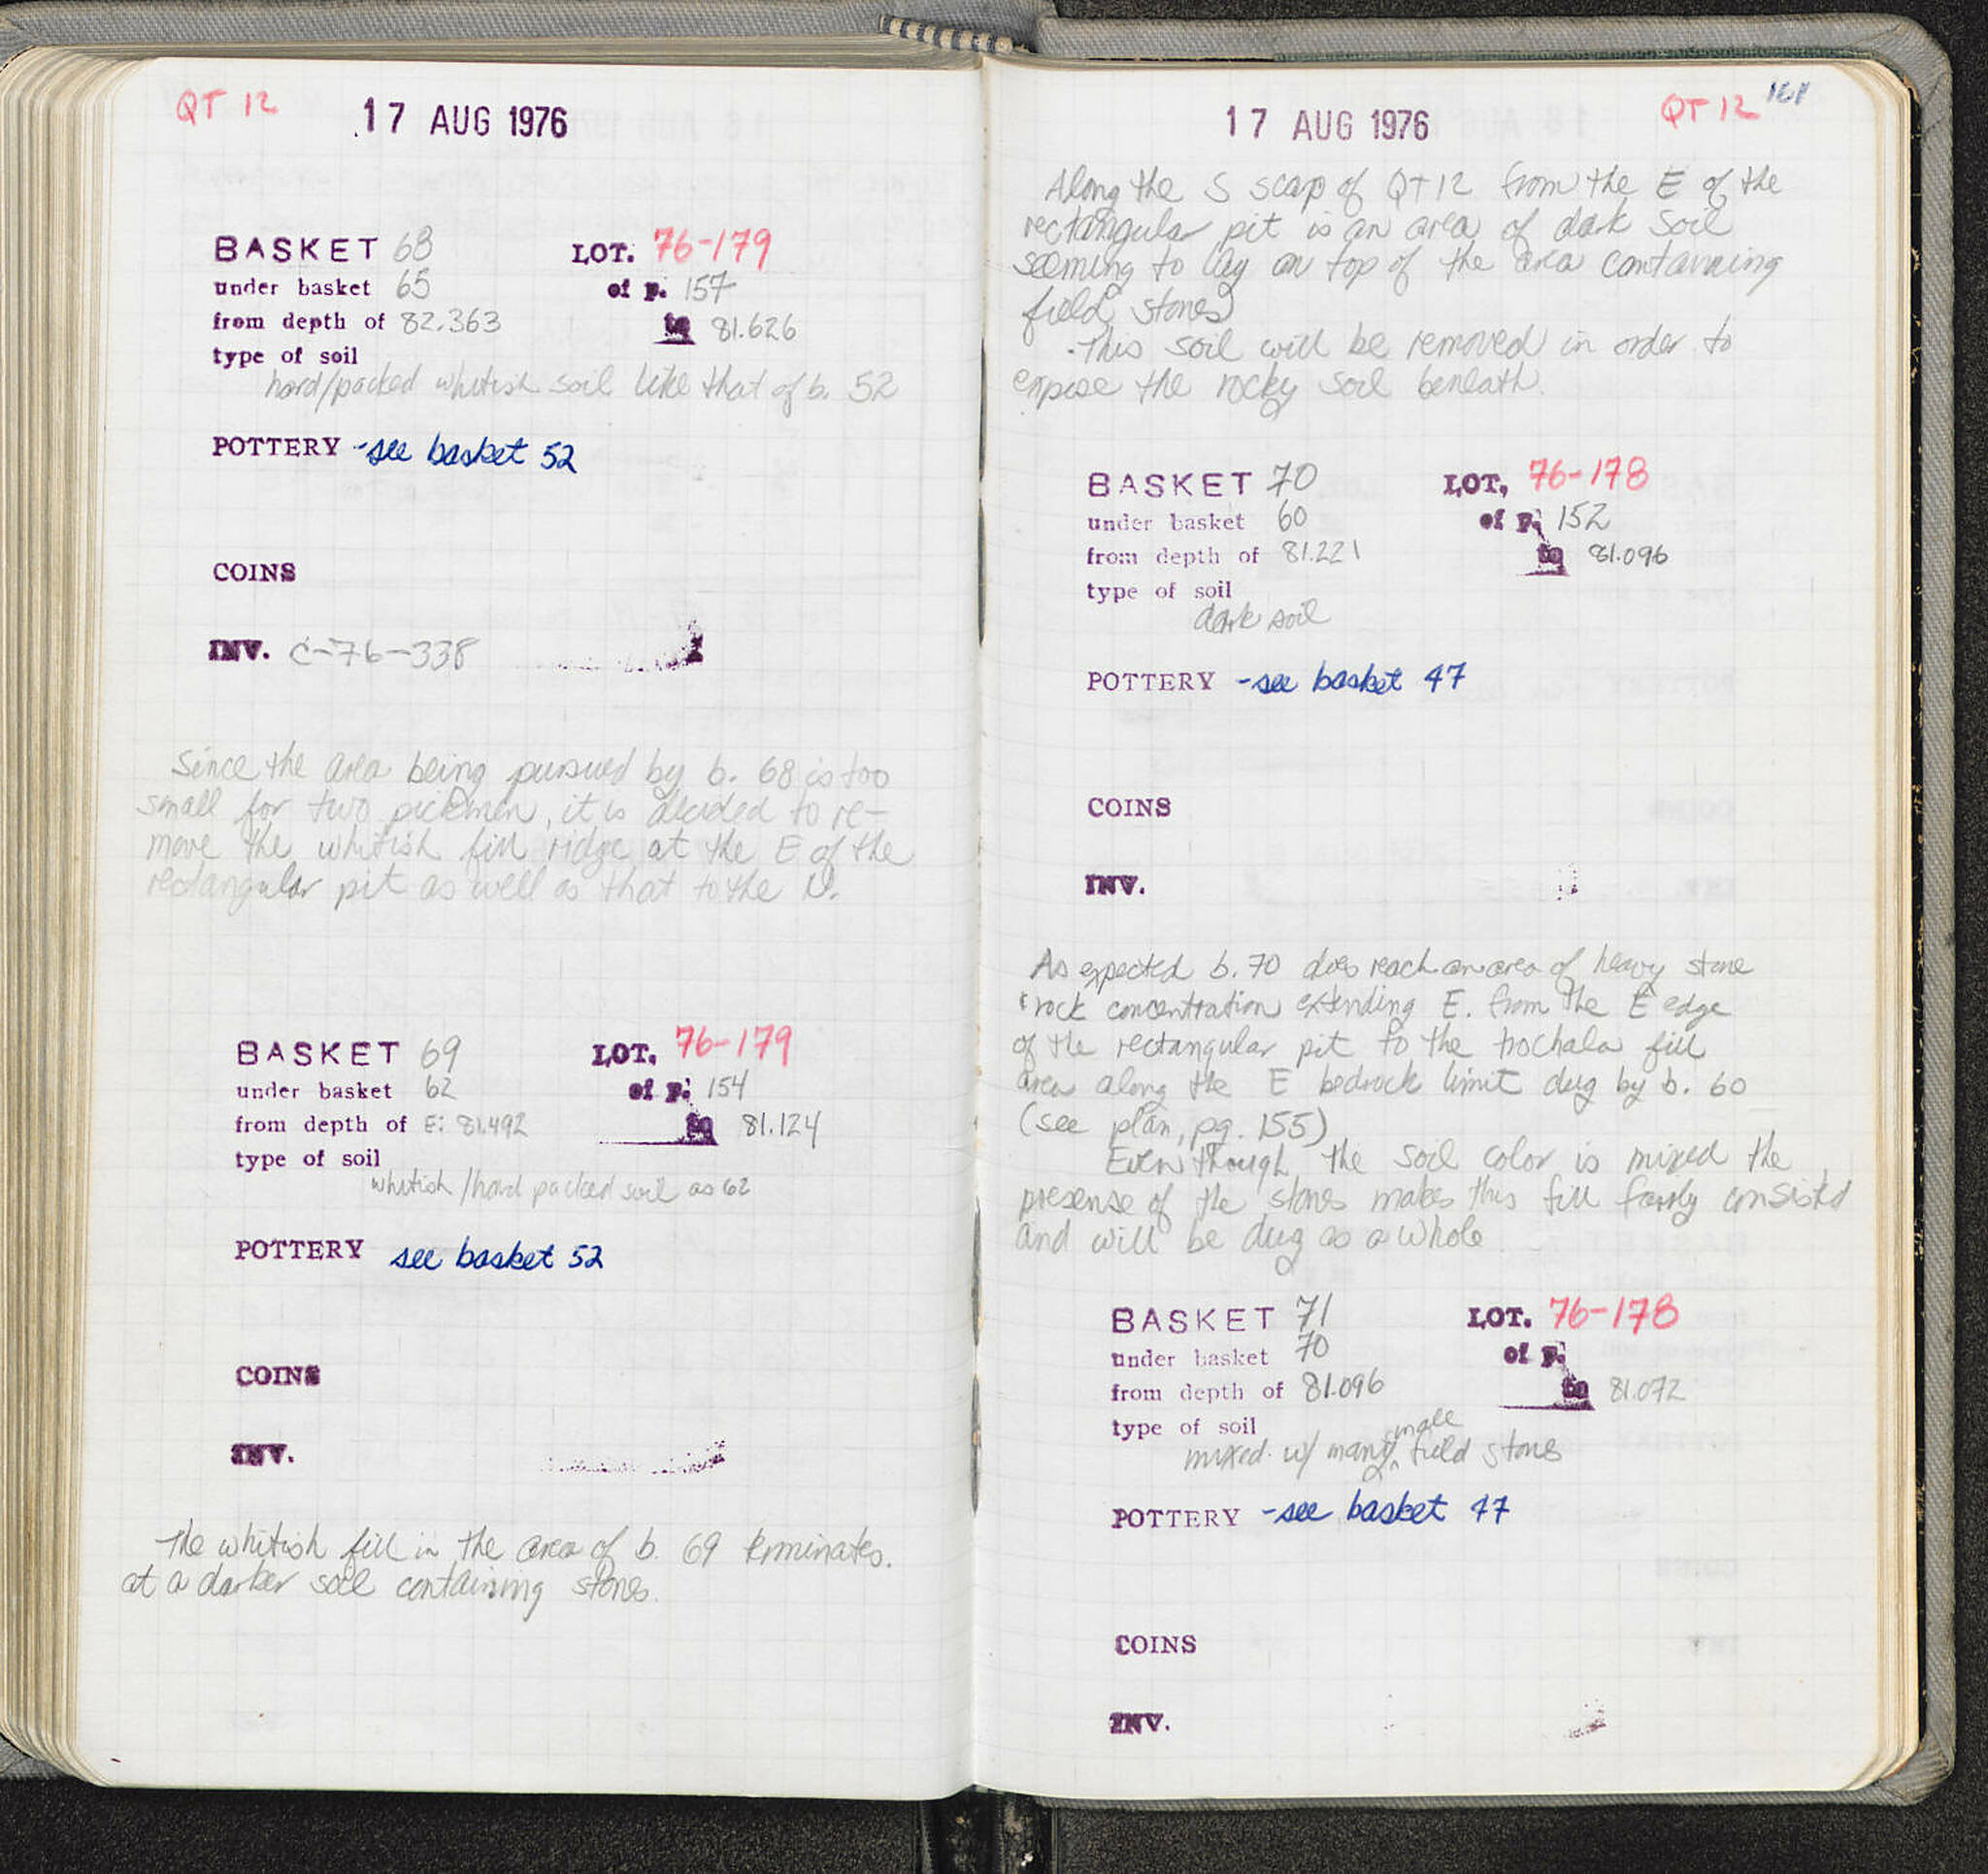 QT 12
17 AUG 1976
BASKET 68 LOT. 76-179
under basket 65 of p. 157
from depth of 82.363 to 81.626
type of soil
hard/packed whitish soil like that of b. 52
POTTERY -see basket 52
COINS
INV. C-76-338
Since the area being pursued by b. 68 is too
small for two pickmen, it is decided to re-
move the whitish fill ridge at the E of the
rectangular pit as well as that to the N.
BASKET 69 LOT. 76-179
under basket 62 of p. 154
from depth of E: 81.492 to 81.124
type of soil
whitish/hard packed soil as 62
POTTERY see basket 52
COINS
INV.
The whitish fill in the area of b. 69 terminates.
at a darker soil containing stones.
17 AUG 1976
QT 12 161
Along the S scarp of QT 12 from the E of the
rectangular pit is an area of dark soil
seeming to lay on top of the area containing
field stones
.This soil will be removed in order to
expose the rocky soil beneath.
BASKET 70 LOT. 76-178
under basket 60 of p. 152
from depth of 81.221 to 81.096
type of soil
dark soil
POTTERY -see basket 47
COINS
INV.
As expected b. 70 does reach an area of heavy stone
+ rock concentration extending E. from the E edge
of the rectangular pit to the trochala fill
area along the E bedrock limit dug by b. 60
(see plan, pg. 155)
Even though the soil color is mixed the
presense of the stones makes this fill fairly consisted
and will be dug as a whole
BASKET 71 LOT. 76-178
under basket 70 of p.
from depth of 81.096 to 81.072
type of soil
mixed w/ many small field stones
POTTERY -see basket 47
COINS
INV.